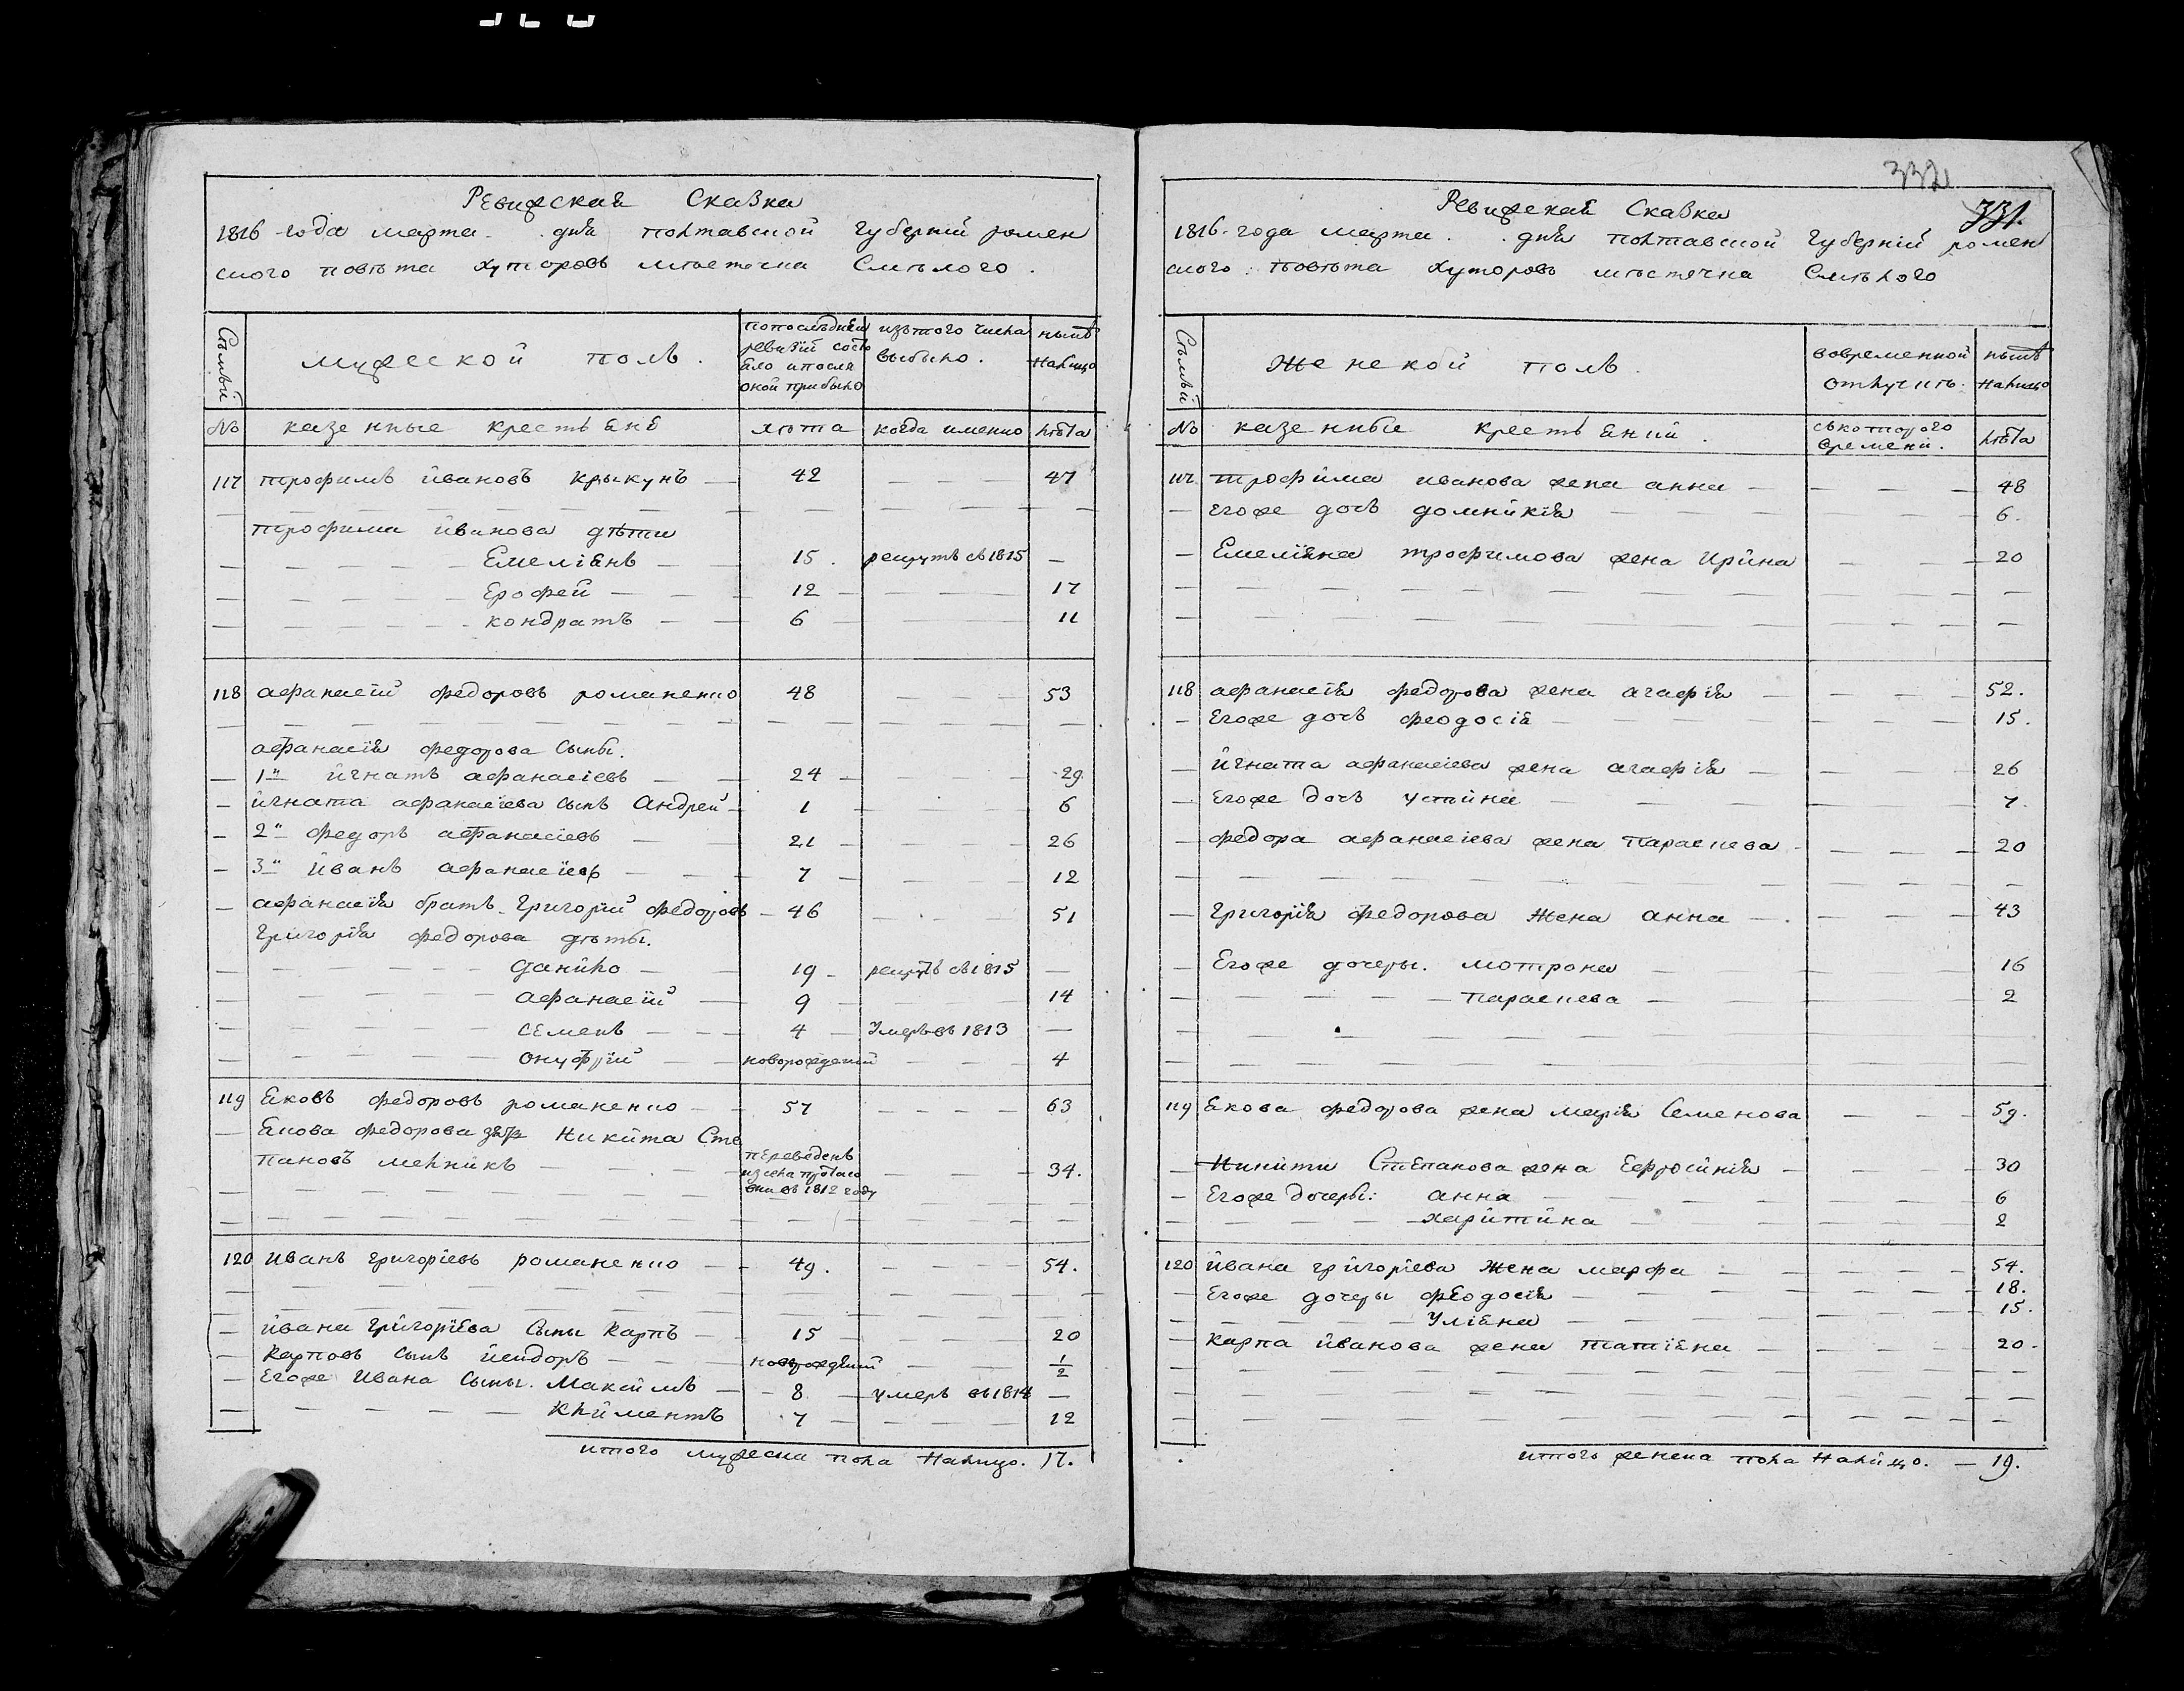 Ревижская Сказка
1816 года марта . дня полтавской губерній ромен
ского повѣта хуторовъ мѣстечка Смѣлого .
Сѣмьи
мужеской полъ .
попослѣдней
ревизій состо
яло ипосля
оной прибыло
изътого числа
выбыло .
нынѣ
Налицо
No казенные крестьянѣ лѣта когда именно лѣта
117 трофимъ ивановъ крыкунъ — 42 — — — 47
трофима иванова дѣти
Емеліянъ — 15 . рекрутъ въ 1815 —
Ерофей — 12 — — 17
кондратъ — 6 — 11
118 афанасій федоровъ романенко 48 — — — 53
афанасія федорова сыны .
— 1й игнатъ афанасіевъ — 24 — — 29
— игната афанасіева сынъ Андрей — 1 — — 6
— 2й федоръ афанасіевъ — 21 — — 26
— 3й иванъ афанасіевъ — 7 — — 12
— афанасія братъ григорій федоровъ — 46 — — 51
григорія федорова дѣты .
данило — 19 — рекрутъ въ 1815 —
афанасій — 9 — — 14
семенъ — 4 — Умеръ въ 1813 —
онуфрій — новорожденій — 4
119 Яковъ федоровъ романенко — 57 — — — 63
— Якова федорова зять Никита Сте
пановъ мельникъ — — 34 .
переведенъ
изсела протасо
вки въ 1812 году
120 Иванъ григоріевъ романенко — 49 . — — — 54 .
— ивана григоріева сыны карпъ — 15 — 20
— карповъ сынъ исидоръ — новорожденій — 1/2
— Егоже Ивана сыны . Максимъ — 8 — умеръ въ 1814 —
— климентъ 7 — — 12
итого мужеска пола Налицо . 17 .
332
331 .
Ревижская Сказка
1816 . года марта . . дня полтавской губерній ромен
ского . повѣта хуторовъ мѣстечка Смѣлого
Сѣмьи
Женской полъ .
вовременной
отлучкѣ .
нынѣ
Налицо
No казенные крестьянки .
съкоторого
времени .
лѣта
117 . трофима иванова жена анна — — — — 48
— егоже дочь домникія — — 6 .
— Емеліяна трофимова жена Ирина — — — 20
118 афанасія федорова жена агафія — — — 52 .
— Егоже дочь феодосія — — 15 .
— Игната афанасіева жена агафія — — — 26
— Егоже дочь устина — — 7 .
— федора афанасіева жена параскева — — — 20
— григорія федорова жена анна — . — — 43
— Егоже дочеры . мотрона — — 16
— параскева — — 2
119 Якова федорова жена марія Семенова — — — 59 .
— Никити Степанова жена Ефросинія — — — 30
— Егоже дочеры : анна — — 6
— харитина — — 2
120 ивана григоріева жена марфа — — — 54 .
— Егоже дочеры феодосія — — 18 .
— Уліяна — — 15 .
— карпа иванова жена татіяна — — — 20 .
итого женска пола Налицо . — 19 .